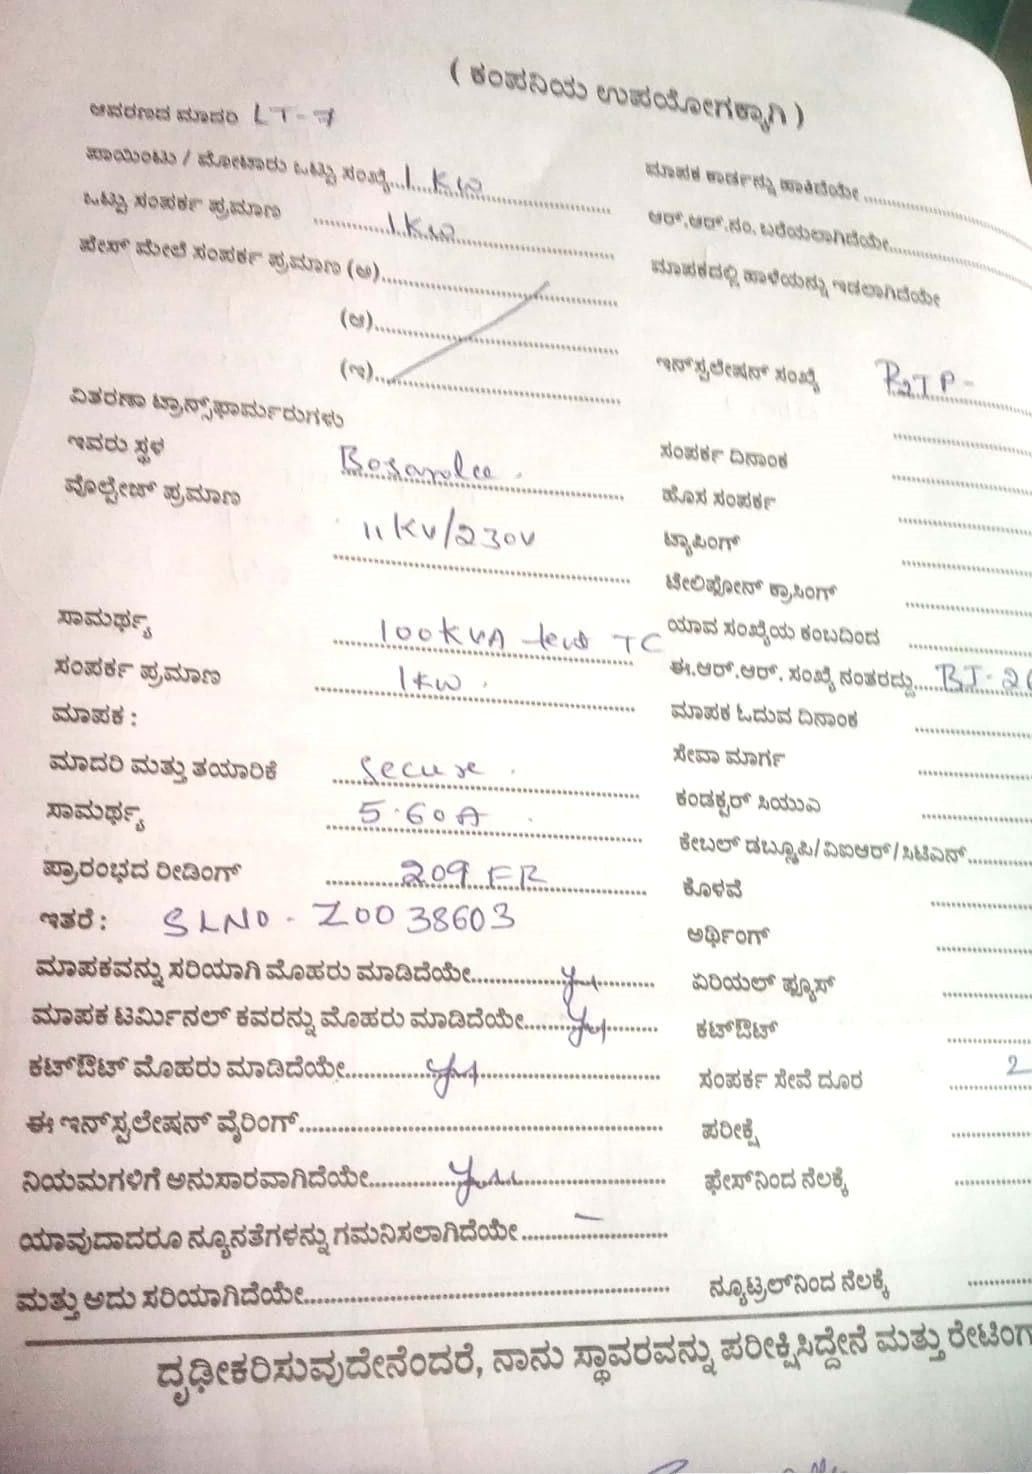 ( ಕಂಪನಿಯ ಉಪಯೋಗಕ್ಕಾಗಿ )
ಆವರಣದ ಮಾದರಿ LT-7
ಪಾಯಿಂಟು / ಮೋಟಾರು ಒಟ್ಟು ಸಂಖ್ಯೆ...1 KW
ಒಟ್ಟು ಸಂಪರ್ಕ ಪ್ರಮಾಣ 1KW
ಪೇಸ್ ಮೇಲೆ ಸಂಪರ್ಕ ಪ್ರಮಾಣ (ಅ)
(ಆ)
(ಇ)
ವಿತರಣಾ ಟ್ರಾನ್ಸ್‌ಫಾರ್ಮರುಗಳು
ಇವರು ಸ್ಥಳ
ವೊಲ್ಟೇಜ್ ಪ್ರಮಾಣ 11KV/230V
ಸಾಮರ್ಥ್ಯ 100KVA TC
ಸಂಪರ್ಕ ಪ್ರಮಾಣ 1KW.
ಮಾಪಕ :
ಮಾದರಿ ಮತ್ತು ತಯಾರಿಕೆ Secure.
ಸಾಮರ್ಥ್ಯ 5-60A
ಪ್ರಾರಂಭದ ರೀಡಿಂಗ್ 209 FR
ಇತರೆ : SLNO - Z0038603
ಮಾಪಕವನ್ನು ಸರಿಯಾಗಿ ಮೊಹರು ಮಾಡಿದೆಯೇ yes
ಮಾಪಕ ಟರ್ಮಿನಲ್ ಕವರನ್ನು ಮೊಹರು ಮಾಡಿದೆಯೇ yes
ಕಟ್‌ಔಟ್ ಮೊಹರು ಮಾಡಿದೆಯೇ yes
ಈ ಇನ್‌ಸ್ಟಲೇಷನ್ ವೈರಿಂಗ್
ನಿಯಮಗಳಿಗೆ ಅನುಸಾರವಾಗಿದೆಯೇ yes
ಯಾವುದಾದರೂ ನ್ಯೂನತೆಗಳನ್ನು ಗಮನಿಸಲಾಗಿದೆಯೇ —
ಮತ್ತು ಅದು ಸರಿಯಾಗಿದೆಯೇ
ಮಾಪಕ ಕಾರ್ಡನ್ನು ಹಾಕಿದೆಯೇ
ಆರ್.ಆರ್.ನಂ. ಬರೆಯಲಾಗಿದೆಯೇ
ಮಾಪಕದಲ್ಲಿ ಹಾಳೆಯನ್ನು ಇಡಲಾಗಿದೆಯೇ
ಇನ್‌ಸ್ಟಲೇಷನ್ ಸಂಖ್ಯೆ
ಸಂಪರ್ಕ ದಿನಾಂಕ
ಹೊಸ ಸಂಪರ್ಕ
ಟ್ಯಾಪಿಂಗ್
ಟೇಲಿಫೋನ್ ಕ್ರಾಸಿಂಗ್
ಯಾವ ಸಂಖ್ಯೆಯ ಕಂಬದಿಂದ
ಈ.ಆರ್.ಆರ್. ಸಂಖ್ಯೆ ನಂತರದ್ದು
ಮಾಪಕ ಓದುವ ದಿನಾಂಕ
ಸೇವಾ ಮಾರ್ಗ
ಕಂಡಕ್ಟರ್ ಸಿಯುಎ
ಕೇಬಲ್ ಡಬ್ಲೂಪಿ/ವಿಐಆರ್/ಸಿಟಿಎನ್
ಕೊಳವೆ
ಅರ್ಥಿಂಗ್
ಏರಿಯಲ್ ಫ್ಯೂಸ್
ಕಟ್‌ಔಟ್
ಸಂಪರ್ಕ ಸೇವೆ ದೂರ 2
ಪರೀಕ್ಷೆ
ಫೇಸ್‌ನಿಂದ ನೆಲಕ್ಕೆ
ನ್ಯೂಟ್ರಲ್‌ನಿಂದ ನೆಲಕ್ಕೆ
ದೃಢೀಕರಿಸುವುದೇನೆಂದರೆ, ನಾನು ಸ್ಥಾವರವನ್ನು ಪರೀಕ್ಷಿಸಿದ್ದೇನೆ ಮತ್ತು ರೇಟಿಂಗ